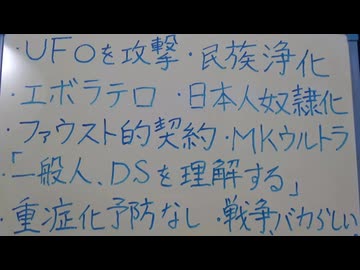 ・UFOを攻撃・民族浄化
・エボラテロ ・日本人奴隷化
・ファウスト的契約・MKウルトラ
「一般人、DSを理解する」
・重症化予防なし ・戦争、バカらしい